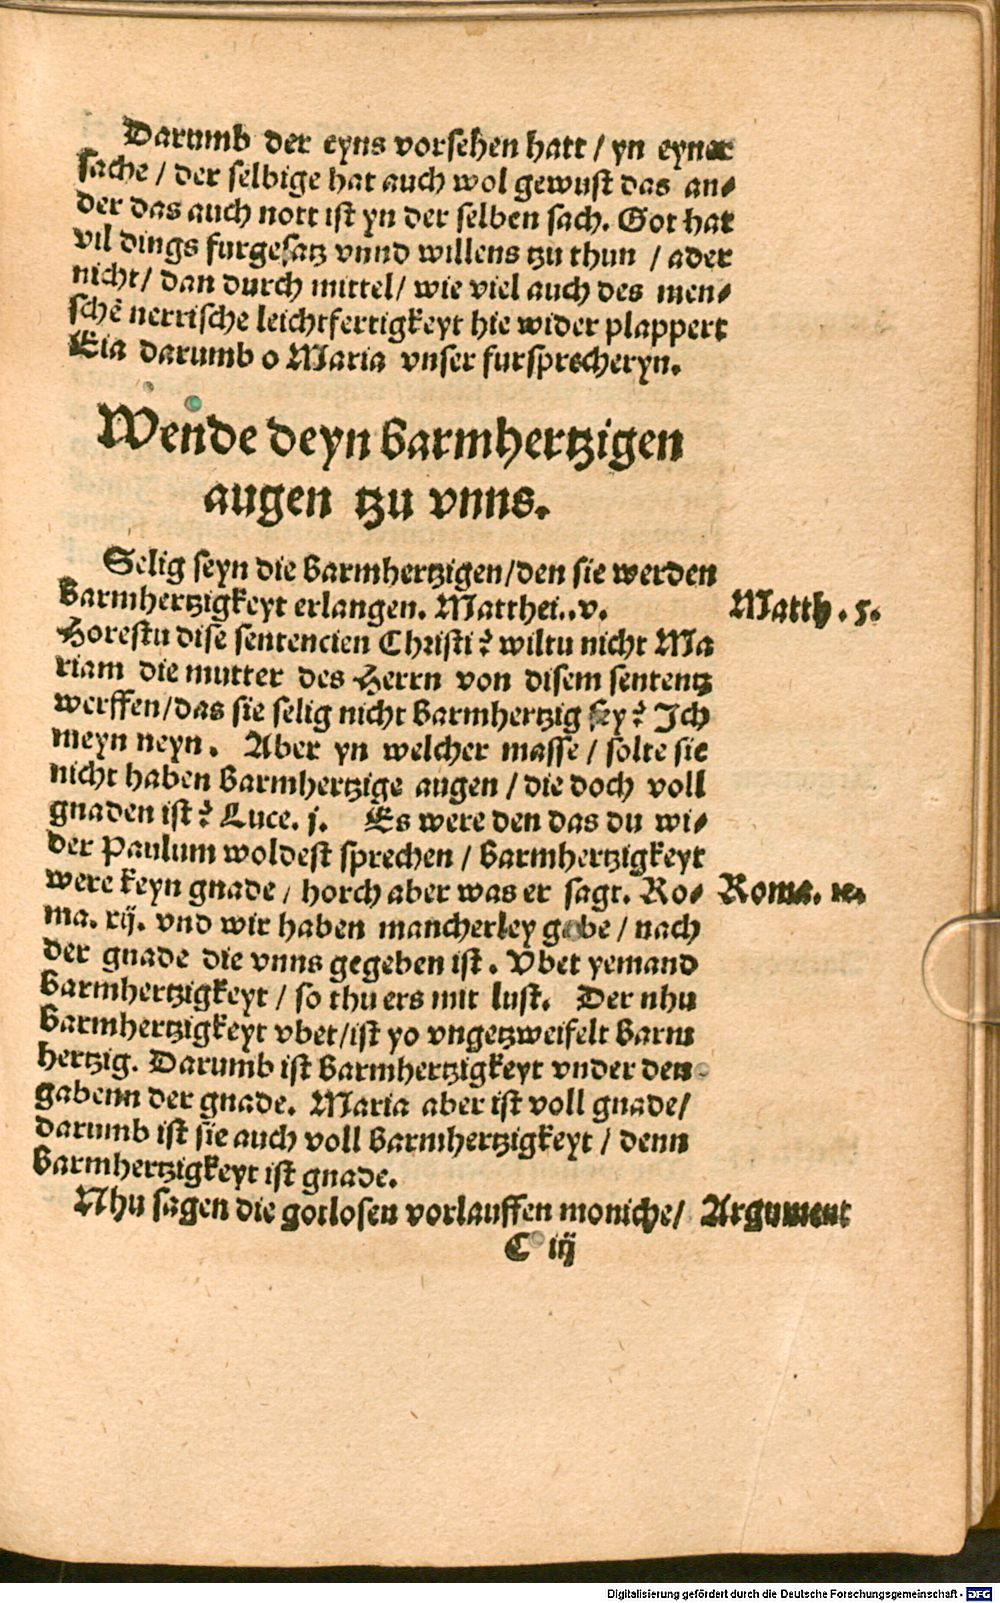 Darumb der eyns vorsehen hatt / yn eyner
sache / der selbige hat auch wol gewust das an⸗
der das auch nott ist yn der selben sach. Got hat
vil dings furgesatz vnnd willens tzu thun / ader
nicht / dan durch mittel / wie viel auch des men⸗
schẽ nerrische leichtfertigkeyt hie wider plappert
Eia darumb o Maria vnser fursprecheryn.
Wende deyn barmhertzigen
augen tzu vnns.
Selig seyn die barmhertzigen / den sie werden
barmhertzigkeyt erlangen. Matthei..v.
Matth. 5.
Horestu dise sentencien Christi? wiltu nicht Ma
riam die mutter des Herrn von disem sententz
werffen / das sie selig nicht barmhertzig sey? Ich
meyn neyn. Aber yn welcher masse / solte sie
nicht haben barmhertzige augen / die doch voll
gnaden ist? Luce. j. Es were den das du wi⸗
der Paulum woldest sprechen / barmhertzigkeyt
were keyn gnade / horch aber was er sagt. Ro⸗
Roma.
ma. xij. vnd wir haben mancherley gabe / nach
der gnade die vnns gegeben ist. Vbet yemand
barmhertzigkeyt / so thu ers mit lust. Der nhu
barmhertzigkeyt vbet / ist yo vngetzweifelt barm
hertzig. Darumb ist barmhertzigkeyt vnder den
gabenn der gnade. Maria aber ist voll gnade /
darumb ist sie auch voll barmhertzigkeyt / denn
barmhertzigkeyt ist gnade.
Nhu sagen die gotlosen vorlauffen moniche /
Argument
C iij
Digitalisierung gefördert durch die Deutsche Forschungsgemeinschaft - DFG